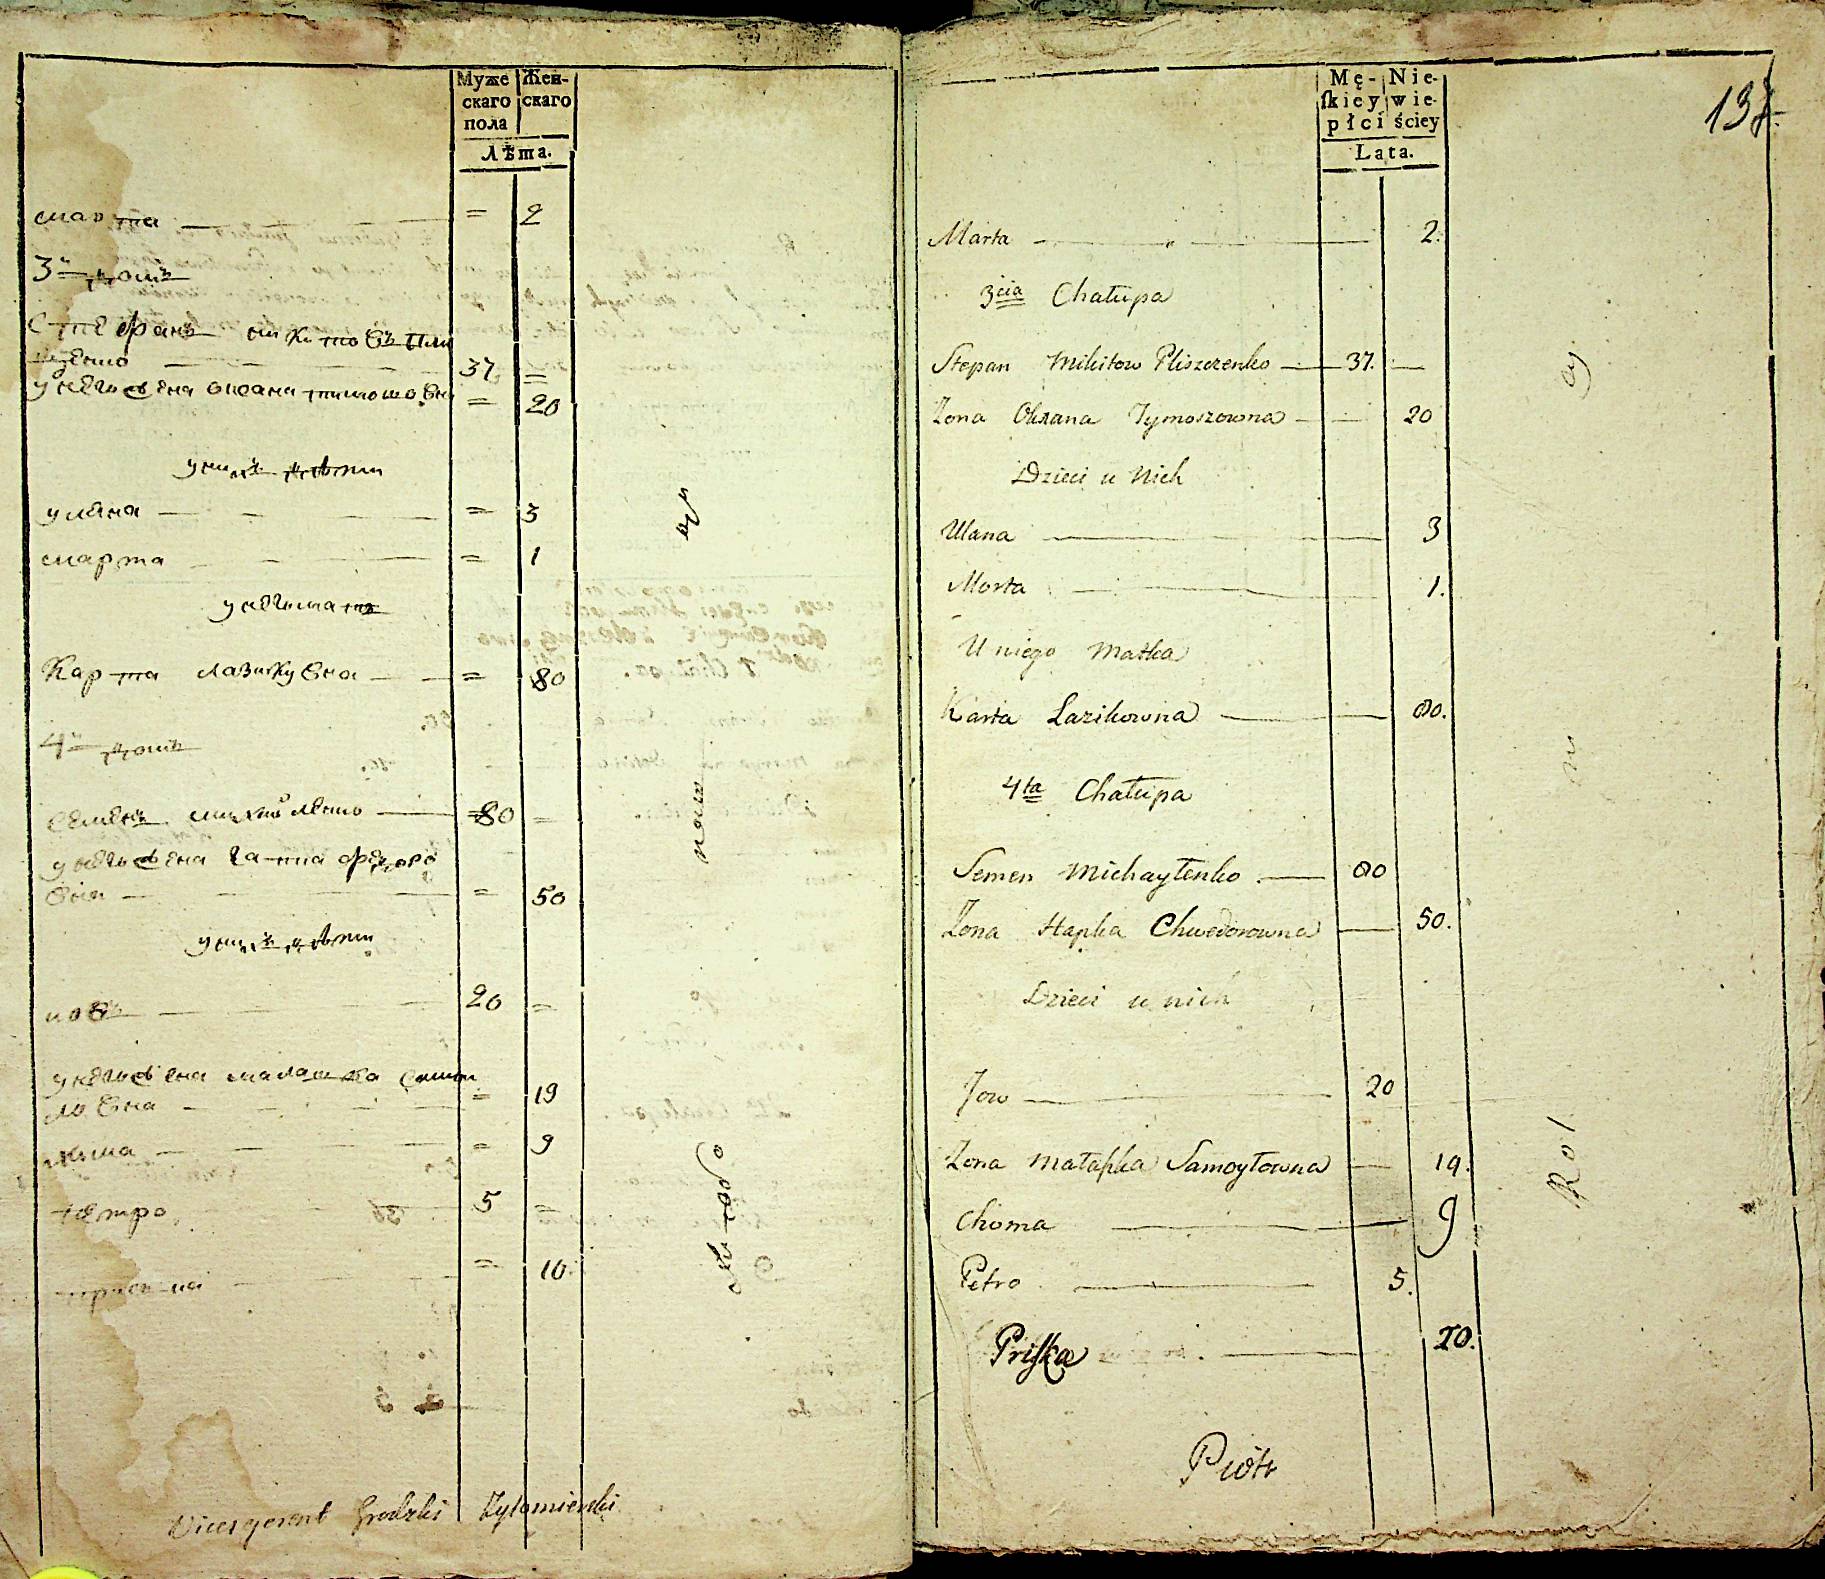 Муже Жен-
скаго скаго
пола
Лѣта.
марта = 2
3й домъ
Степанъ Никитовъ Пли
щенко 37 =
у него жена оксана тимошовна = 20
у нихъ дѣти
уляна = 3
марта = 1
у него мать
Карта лазикувна = 80
4й домъ
Семенъ михайленко 80 =
у него жена гапка федоро
вна = 50
у нихъ дѣти
иовъ 20 =
у него жена малашка самой
ловна = 19
хома = 9
петро 5 =
приська = 10
Vicesgerent Grodzki Żytomierski
137.
Mę- Nie-
ſkiey wie-
płci ściey
Lata.
Marta 2.
3cia Chałupa
Stepan Mikitow Pliszczenko 37.
Żona Oxana Tymoszowna 20
Dzieci u Nich
Ulana 3
Marta 1.
U niego Matka
Karta Lazikowna 80.
4ta Chałupa
Semen Michayłenko 80
Żona Hapka Chwedorowna 50.
Dzieci u nich
Jow 20
Żona Małaſzka Samoyłowna 19.
Choma 9
Petro 5.
Priſka 10.
Rol
Piotr